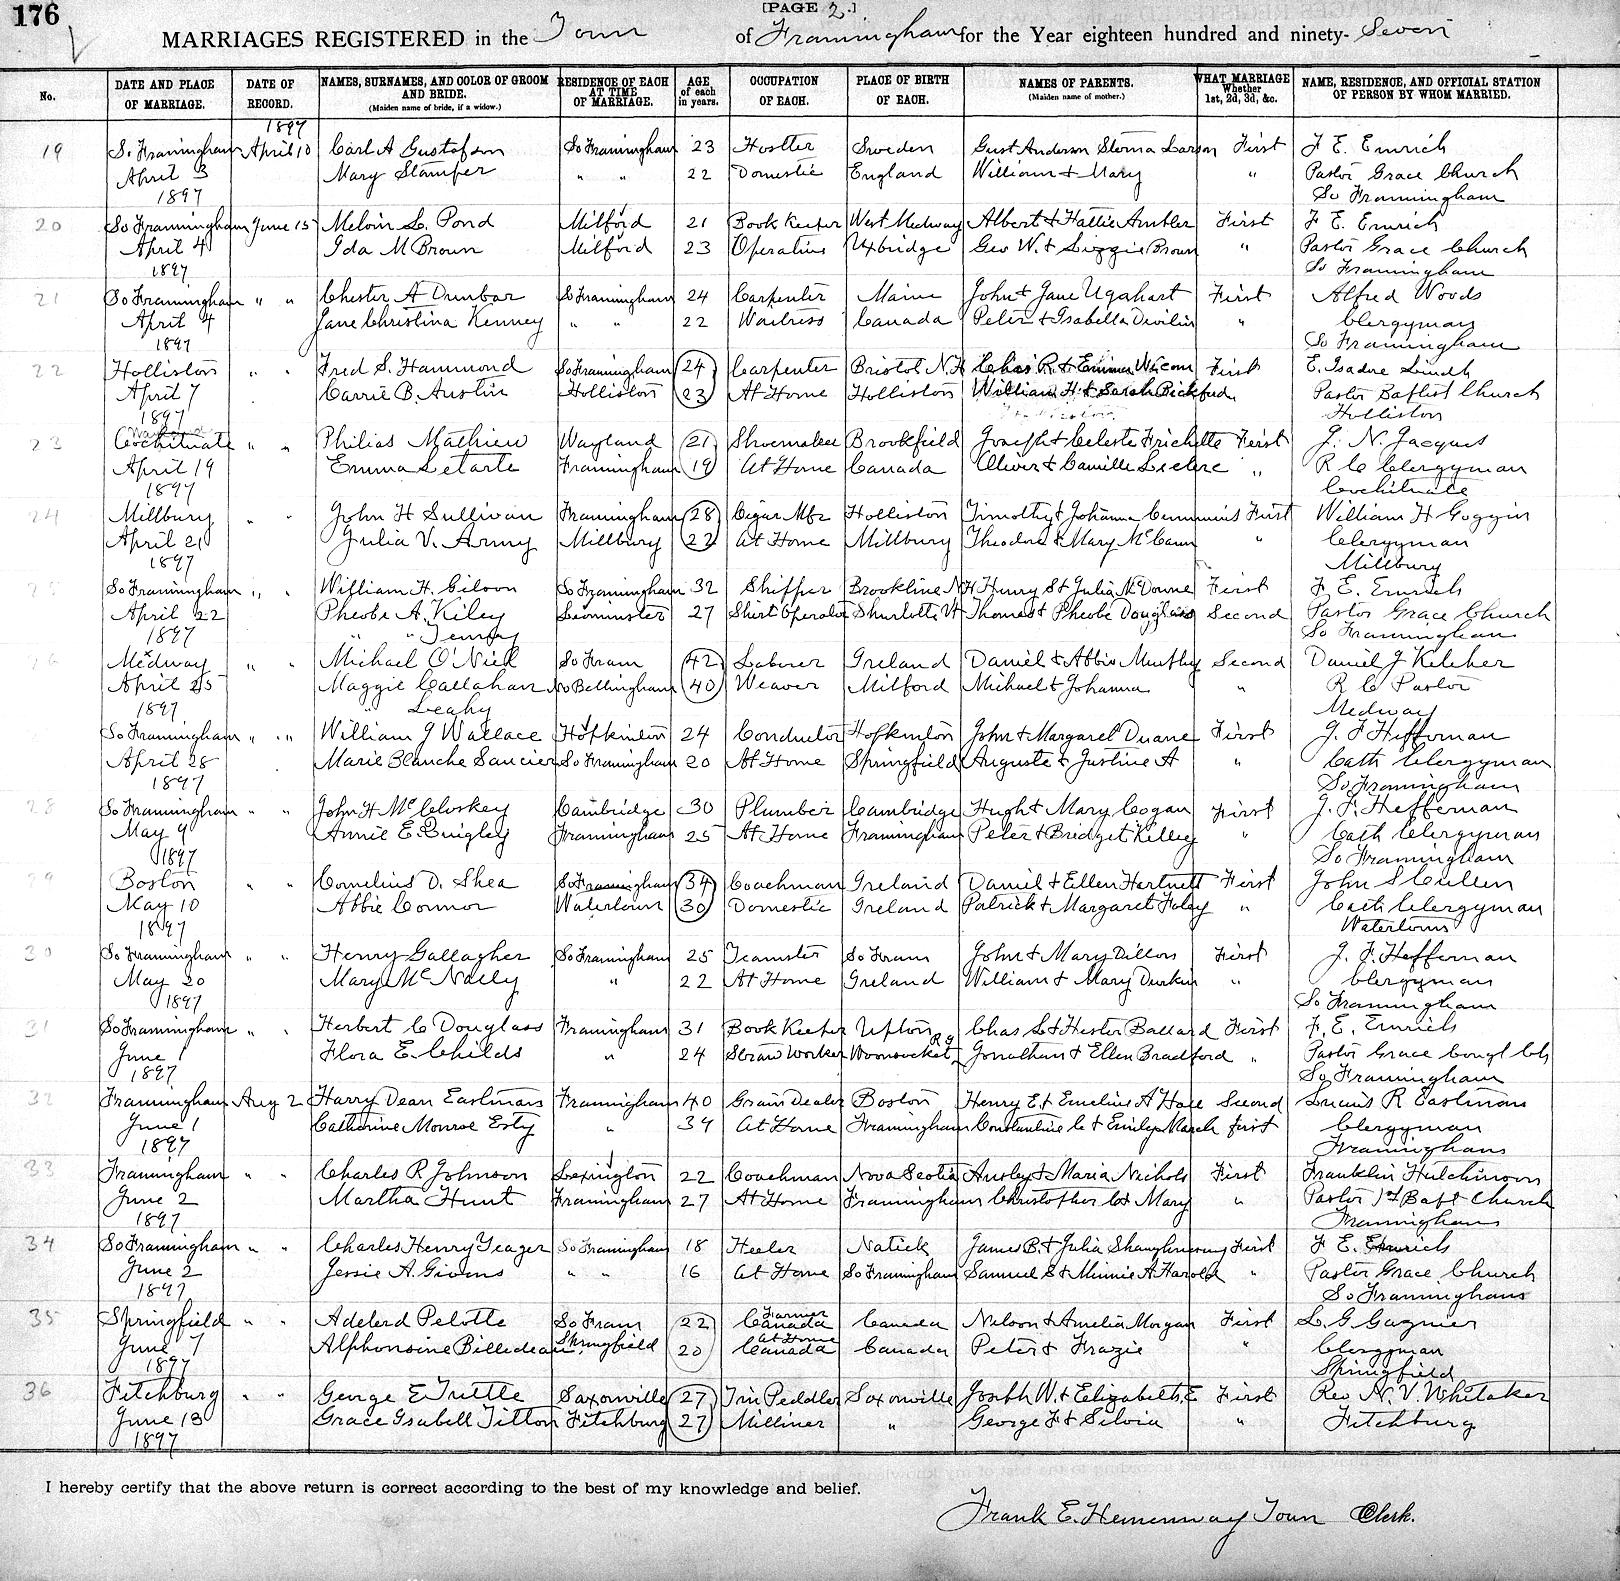 176
[PAGE 2.]
MARRIAGES REGISTERED in the Town of Framingham for the Year eighteen hundred and ninety- Seven
No. DATE AND PLACE OF MARRIAGE. DATE OF RECORD. NAMES, SURNAMES, AND COLOR OF GROOM AND BRIDE. (Maiden name of bride, if a widow.) RESIDENCE OF EACH AT TIME OF MARRIAGE. AGE of each in years. OCCUPATION OF EACH. PLACE OF BIRTH OF EACH. NAMES OF PARENTS. (Maiden name of mother.) WHAT MARRIAGE Whether 1st, 2d, 3d, &c. NAME, RESIDENCE, AND OFFICIAL STATION OF PERSON BY WHOM MARRIED.
1897
19 S. Framingham April 10 Carl A Gustafson So Framingham 23 Hostler Sweden Gust Anderson Larson First F E. Emrich
April 3 Mary Stamper " " 22 Domestic England William & Mary " Pastor Grace Church
1897 So Framingham
20 So Framingham June 15 Melvin L. Pond Milford 21 Book Keeper West Medway Albert & Hattie Ambler First F E. Emrich
April 4 Ida M Brown Milford 23 Operative Uxbridge Geo W. & Lizzie Brown " Pastor Grace Church
1897 So Framingham
21 So Framingham " " Chester A Dunbar So Framingham 24 Carpenter Maine John & Jane First Alfred Woods
April 4 Jane Christina Kenney " " 22 Waitress Canada Peter & Isabella Devilin " Clergyman
1897 So Framingham
22 Holliston " " Fred S. Hammond So Framingham 24 Carpenter Bristol N.H Chas R. & Emma First E. Isadore Lindh
April 7 Carrie B. Austin Holliston 23 At Home Holliston William H & Sarah Bickford " Pastor Baptist Church
1897 Holliston
23 Cochituate " " Philias Mathieu Wayland 21 Shoemaker Brookfield Joseph & Celeste Frichette First J. N. Jacques
April 19 Emma Letarte Framingham 19 At Home Canada Oliver & Camille Leclerc " R C Clergyman
1897 Cochituate
24 Millbury " " John H Sullivan Framingham 28 Cigar Mfr Holliston Timothy & Johanna Cummins First William H Goggin
April 21 Julia V. Army Millbury 22 At Home Millbury Theodore & Mary McCann " Clergyman
1897 Millbury
25 So Framingham " " William H. Gilson So Framingham 32 Shipper Brookline N H Henry S & Julia McDonne First F. E. Emrich
April 22 Pheobe A. Kiley Leominster 27 Shirt Operator Charlotte Vt Thomas & Pheobe Douglass Second Pastor Grace Church
1897 " " So Framingham
26 Medway " " Michael O'Niel So Fram 42 Laborer Ireland Daniel & Abbie Murthy Second Daniel J Keleher
April 25 Maggie Callahan No Bellingham 40 Weaver Milford Michael & Johanna " R C Pastor
1897 " Leahy Medway
So Framingham " " William J Wallace Hopkinton 24 Conductor Hopkinton John & Margaret Duane First J. F Heffernan
April 28 Marie Blanche Saucier So Framingham 20 At Home Springfield Auguste & Justine A " Cath Clergyman
1897 So Framingham
28 So Framingham " " John H McCloskey Cambridge 30 Plumber Cambridge Hugh & Mary Cogan First J. F. Heffernan
May 9 Annie E. Quigley Framingham 25 At Home Framingham Peter & Bridget Killey " Cath Clergyman
1897 So Framingham
29 Boston " " Cornelius D. Shea So Framingham 34 Coachman Ireland Daniel & Ellen Hartnett First John S Cullen
May 10 Abbie Connor Watertown 30 Domestic Ireland Patrick & Margaret Foley " Cath Clergyman
1897 Watertown
30 So Framingham " " Henry Gallagher So Framingham 25 Teamster So Fram John & Mary Dillon First J. F. Heffernan
May 20 Mary McNally " 22 At Home Ireland William & Mary Durkin " Clergyman
1897 So Framingham
31 So Framingham " " Herbert C Douglass Framingham 31 Book Keeper Upton Chas L & Hester Ballard First F. E. Emrich
June 1 Flora E. Childs " 24 Straw Worker Woonsocket R I Jonathan & Ellen Bradford " Pastor Grace Congl Ch
1897 So Framingham
32 Framingham Aug 2 Harry Dean Eastman Framingham 40 Grain Dealer Boston Henry E & Emeline A Hall Second Lucius R Eastman
June 1 Catherine Monroe Esty " 34 At Home Framingham Constantine C & Emily March first Clergyman
1897 Framingham
33 Framingham " " Charles R Johnson Lexington 22 Coachman Nova Scotia Ansley & Maria Nichols First Franklin Hutchinson
June 2 Martha Hunt Framingham 27 At Home Framingham Christopher C & Mary " Pastor 1st Bapt Church
1897 Framingham
34 So Framingham " " Charles Henry Yeager So Framingham 18 Heeler Natick James B. & Julia Shaughnessy First F E. Emrich
June 2 Jessie A. Givens " " 16 At Home So Framingham Samuel S & Minnie A Harold " Pastor Grace Church
1897 So Framingham
35 Springfield " " Adelerd Pelotte So Fram 22 Farmer Canada Canada Nelson & Amelia Morgan First L. G Gagnier
June 7 Alphonsine Billedeau Springfield 20 At Home Canada Canada Peter & Frazie " Clergyman
1897 Springfield
36 Fitchburg " " George E Tuttle Saxonville 27 Tin Peddler Saxonville Joseph W. & Elizabeth E First Rev N. V. Whitaker
June 13 Grace Isabell Titton Fitchburg 27 Milliner " George F & Silvia " Fitchburg
1897
I hereby certify that the above return is correct according to the best of my knowledge and belief.
Frank E. Hemenway Town Clerk.